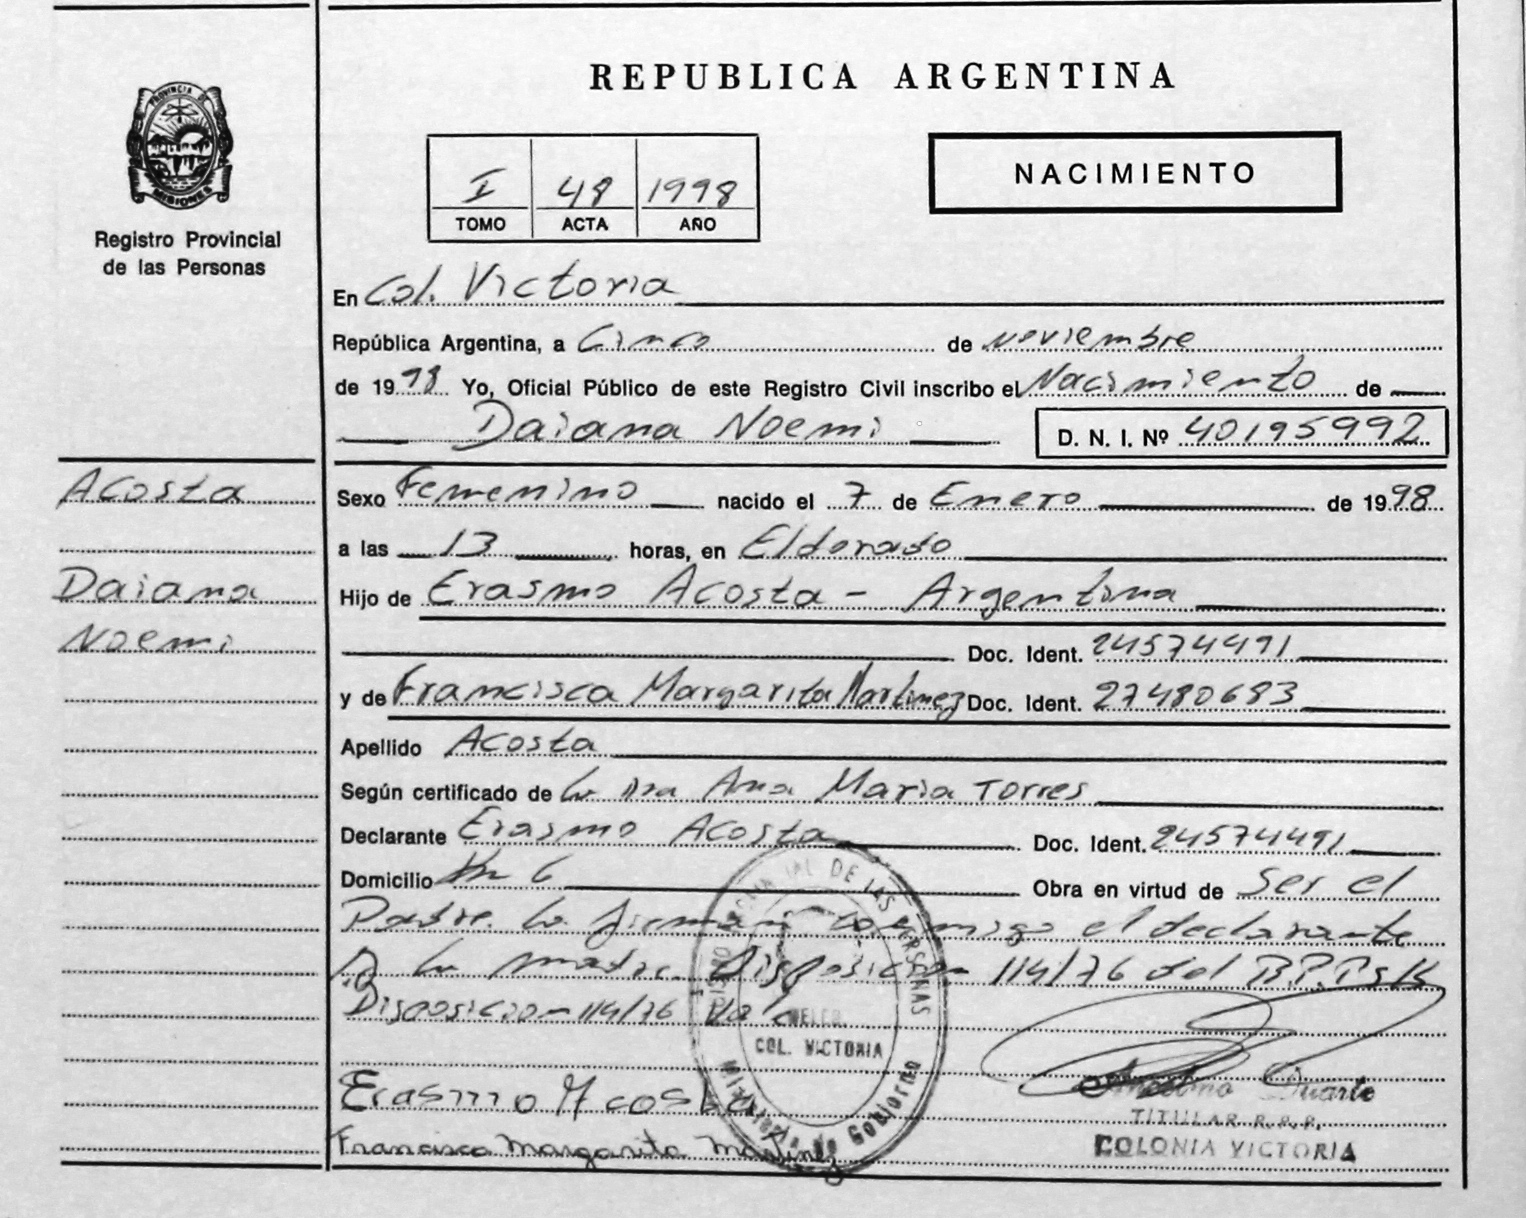 REPUBLICA ARGENTINA
PROVINCIA DE
MISIONES
Registro Provincial
de las Personas
I 48 1998
TOMO ACTA AÑO
NACIMIENTO
En Col. Victoria
República Argentina, a Cinco de noviembre
de 1998 Yo, Oficial Público de este Registro Civil inscribo el Nacimiento de
Daiana Noemi D. N. I. Nº 40195992
Acosta
Daiana
Noemi
Sexo Femenino nacido el 7 de Enero de 1998
a las 13 horas, en Eldorado
Hijo de Erasmo Acosta - Argentina
Doc. Ident. 24574491
y de Francisca Margarita Martinez Doc. Ident. 27480683
Apellido Acosta
Según certificado de la Dra Ana Maria Torres
Declarante Erasmo Acosta Doc. Ident. 24574491
Domicilio Km 6 Obra en virtud de ser el
Padre. Lo firman conmigo el declarante
y la madre. Disposicion 114/76 del
Disposicion 114/76 Vale
Erasmo Acosta
Francisca Margarita Martinez
DE LAS PERSONAS
COL. VICTORIA
Ministerio de Gobierno
Duarte
TITULAR R.P.P.
COLONIA VICTORIA